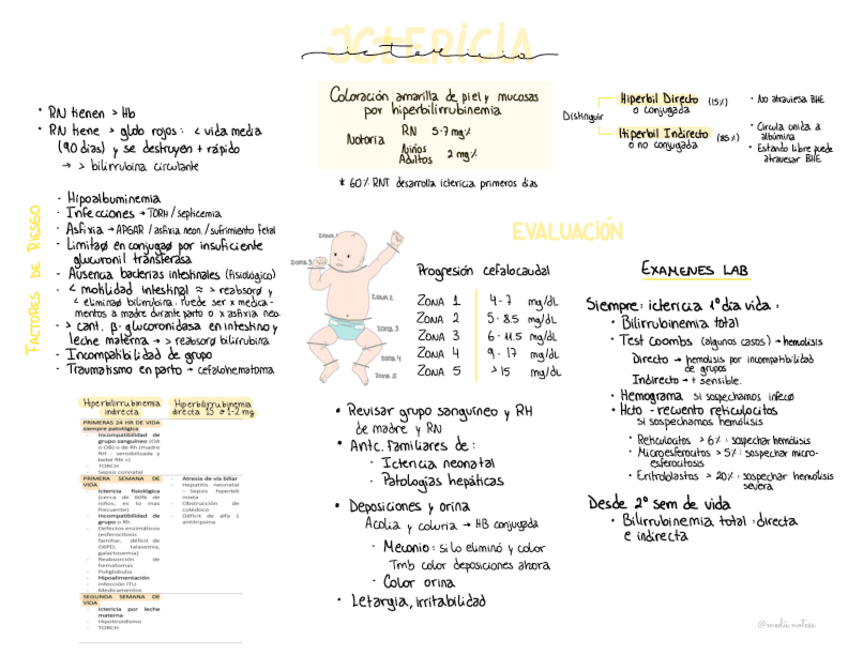 ICTERICIA
ictericia
Coloración amarilla de piel y mucosas
por hiperbilirrubinemia
Notoria
RN 5-7 mg%
Niños
Adultos
2 mg%
* 60% RNT desarrolla ictericia primeros días
Distinguir
Hiperbil Directo (15%)
o conjugada
· No atraviesa BHE
Hiperbil Indirecto (85%)
o no conjugada
· Circula unida a
albúmina
· Estando libre puede
atravesar BHE
• RN tienen > Hb
• RN tiene > glob rojos: < vida media
(90 días) y se destruyen + rápido
→ > bilirrubina circulante
FACTORES DE RIESGO
- Hipoalbuminemia
- Infecciones → TORH / septicemia
- Asfixia → APGAR / asfixia neon. / sufrimiento fetal
- Limitaø en conjugaø por insuficiente
glucuronil transferasa
- Ausencia bacterias intestinales (fisiológico)
- < motilidad intestinal ≈ > reabsorø y
< eliminaø bilirrubina. Puede ser x medica-
mentos a madre durante parto o x asfixia neo.
- > cant. β-glucoronidasa en intestino y
leche materna → > reabsorø bilirrubina
- Incompatibilidad de grupo
- Traumatismo en parto → cefalohematoma
Hiperbilirrubinemia
indirecta
Hiperbilirrubinemia
directa
PRIMERAS 24 HR DE VIDA
siempre patológica
- Incompatibilidad de
grupo sanguíneo (OA
o OB) o de Rh (madre
RH - sensibilizada y
bebé RN +)
- TORCH
- Sepsis connatal
PRIMERA SEMANA DE
VIDA
- Ictericia fisiológica
(cerca de 60% de
niños, es lo mas
frecuente)
- Incompatibilidad de
grupo o Rh
- Defectos enzimáticos
(esferocitosis
familiar, déficit de
G6PD, talasemia,
galactosemia)
- Reabsorción de
hematomas
- Poliglobulia
- Hipoalimentación
- Infección ITU
- Medicamentos
- Atresia de vía biliar
- Hepatitis neonatal
- Sepsis hiperbili
mixta
- Obstrucción de
colédoco
- Déficit de alfa 1
antitripsina
SEGUNDA SEMANA DE
VIDA
- Ictericia por leche
materna
- Hipotiroidismo
- TORCH
EVALUACIÓN
zona 1
zona 2
zona 3
zona 3
zona 4
zona 5
Progresión cefalocaudal
ZONA 1 4-7 mg/dL
ZONA 2 5-8.5 mg/dL
ZONA 3 6-11.5 mg/dL
ZONA 4 9-17 mg/dL
ZONA 5 >15 mg/dL
• Revisar grupo sanguíneo y RH
de madre y RN
• Antc. familiares de:
· Ictericia neonatal
· Patologías hepáticas
• Deposiciones y orina
Acolia y coluria → HB conjugada
· Meconio: si lo eliminó y color
Tmb color deposiciones ahora
· Color orina
• Letargia, irritabilidad
EXAMENES LAB
Siempre: ictericia 1º día vida:
• Bilirrubinemia total
• Test Coombs (algunos casos) → hemolisis
Directo → hemolisis por incompatibilidad
de grupos
Indirecto → + sensible.
• Hemograma si sospechamos infecø
• Hcto - recuento reticulocitos
si sospechamos hemólisis
• Reticulocitos > 6%: sospechar hemólisis
• Microesferocitos > 5%: sospechar micro-
esferocitosis
• Eritroblastos > 20%: sospechar hemólisis
severa
Desde 2º sem de vida
• Bilirrubinemia total: directa
e indirecta
@medii.notess